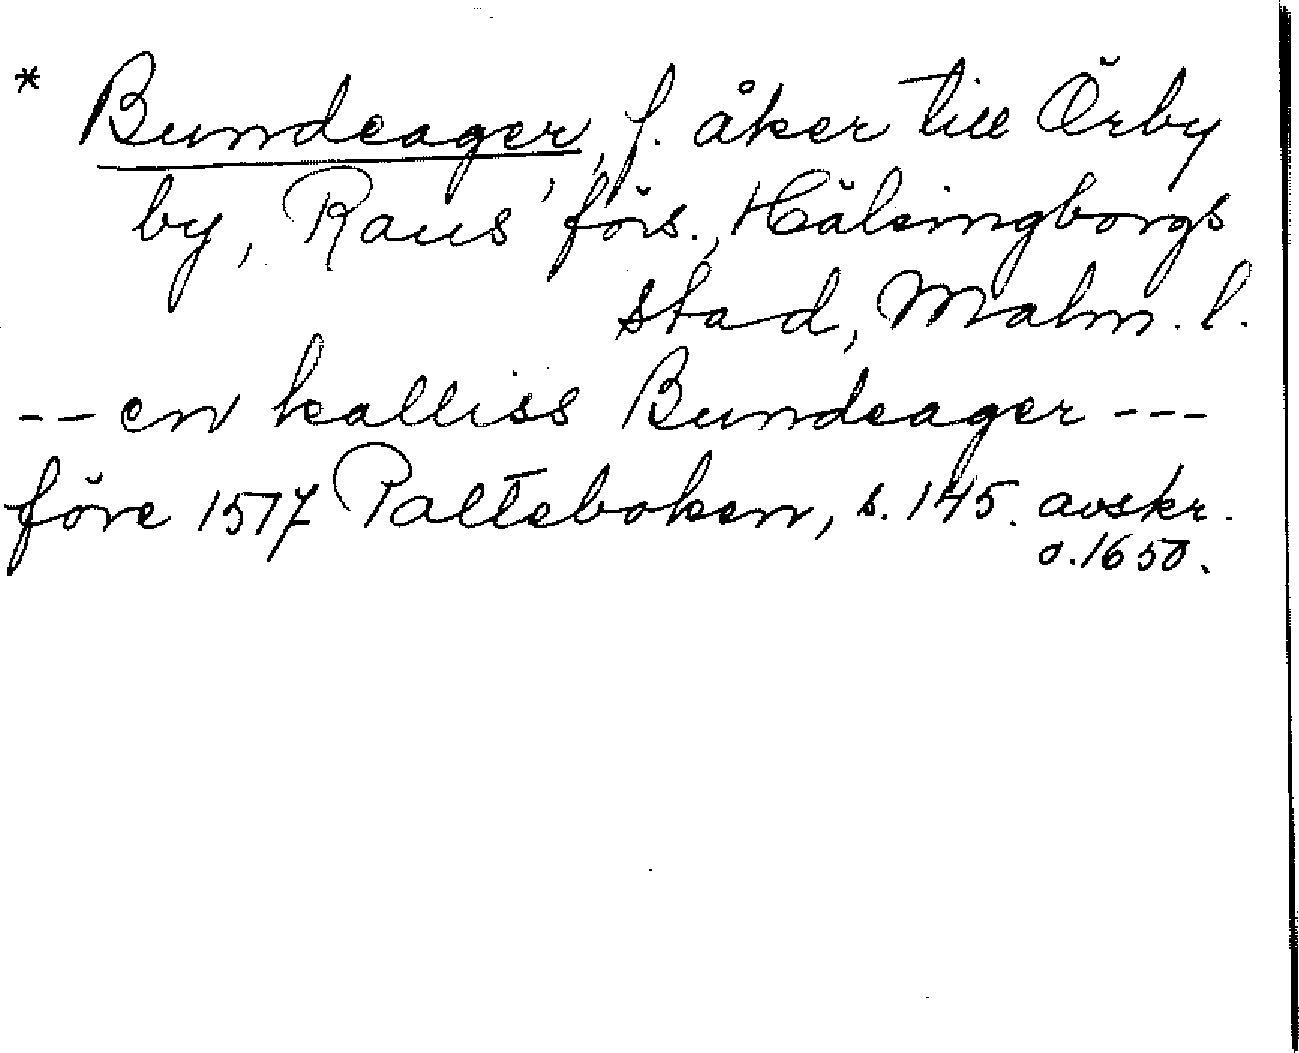 * Bundeager, f. åker till Örby
by, Raus' förs., Hälsingborgs
stad, Malm. l.
-- en kalliss Bundeager ---
före 1517 Palteboken, s. 145. avskr.
o. 1650.